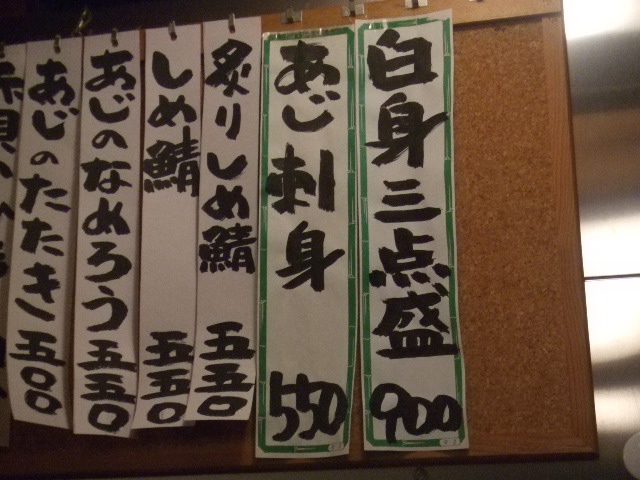 白身三点盛 900
あじ刺身 550
炙りしめ鯖 五五〇
しめ鯖 五五〇
あじのなめろう 五五〇
あじのたたき 五〇〇
赤貝